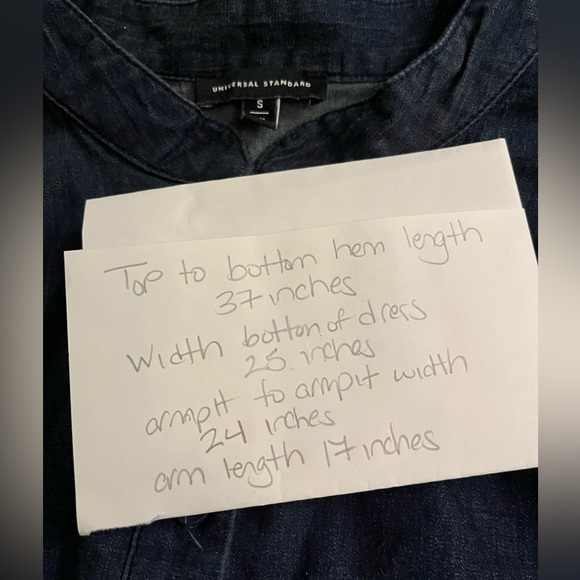 UNIVERSAL STANDARD
S
Top to bottom hem length
37 inches
Width bottom of dress
25 inches
armpit to armpit width
24 inches
arm length 17 inches